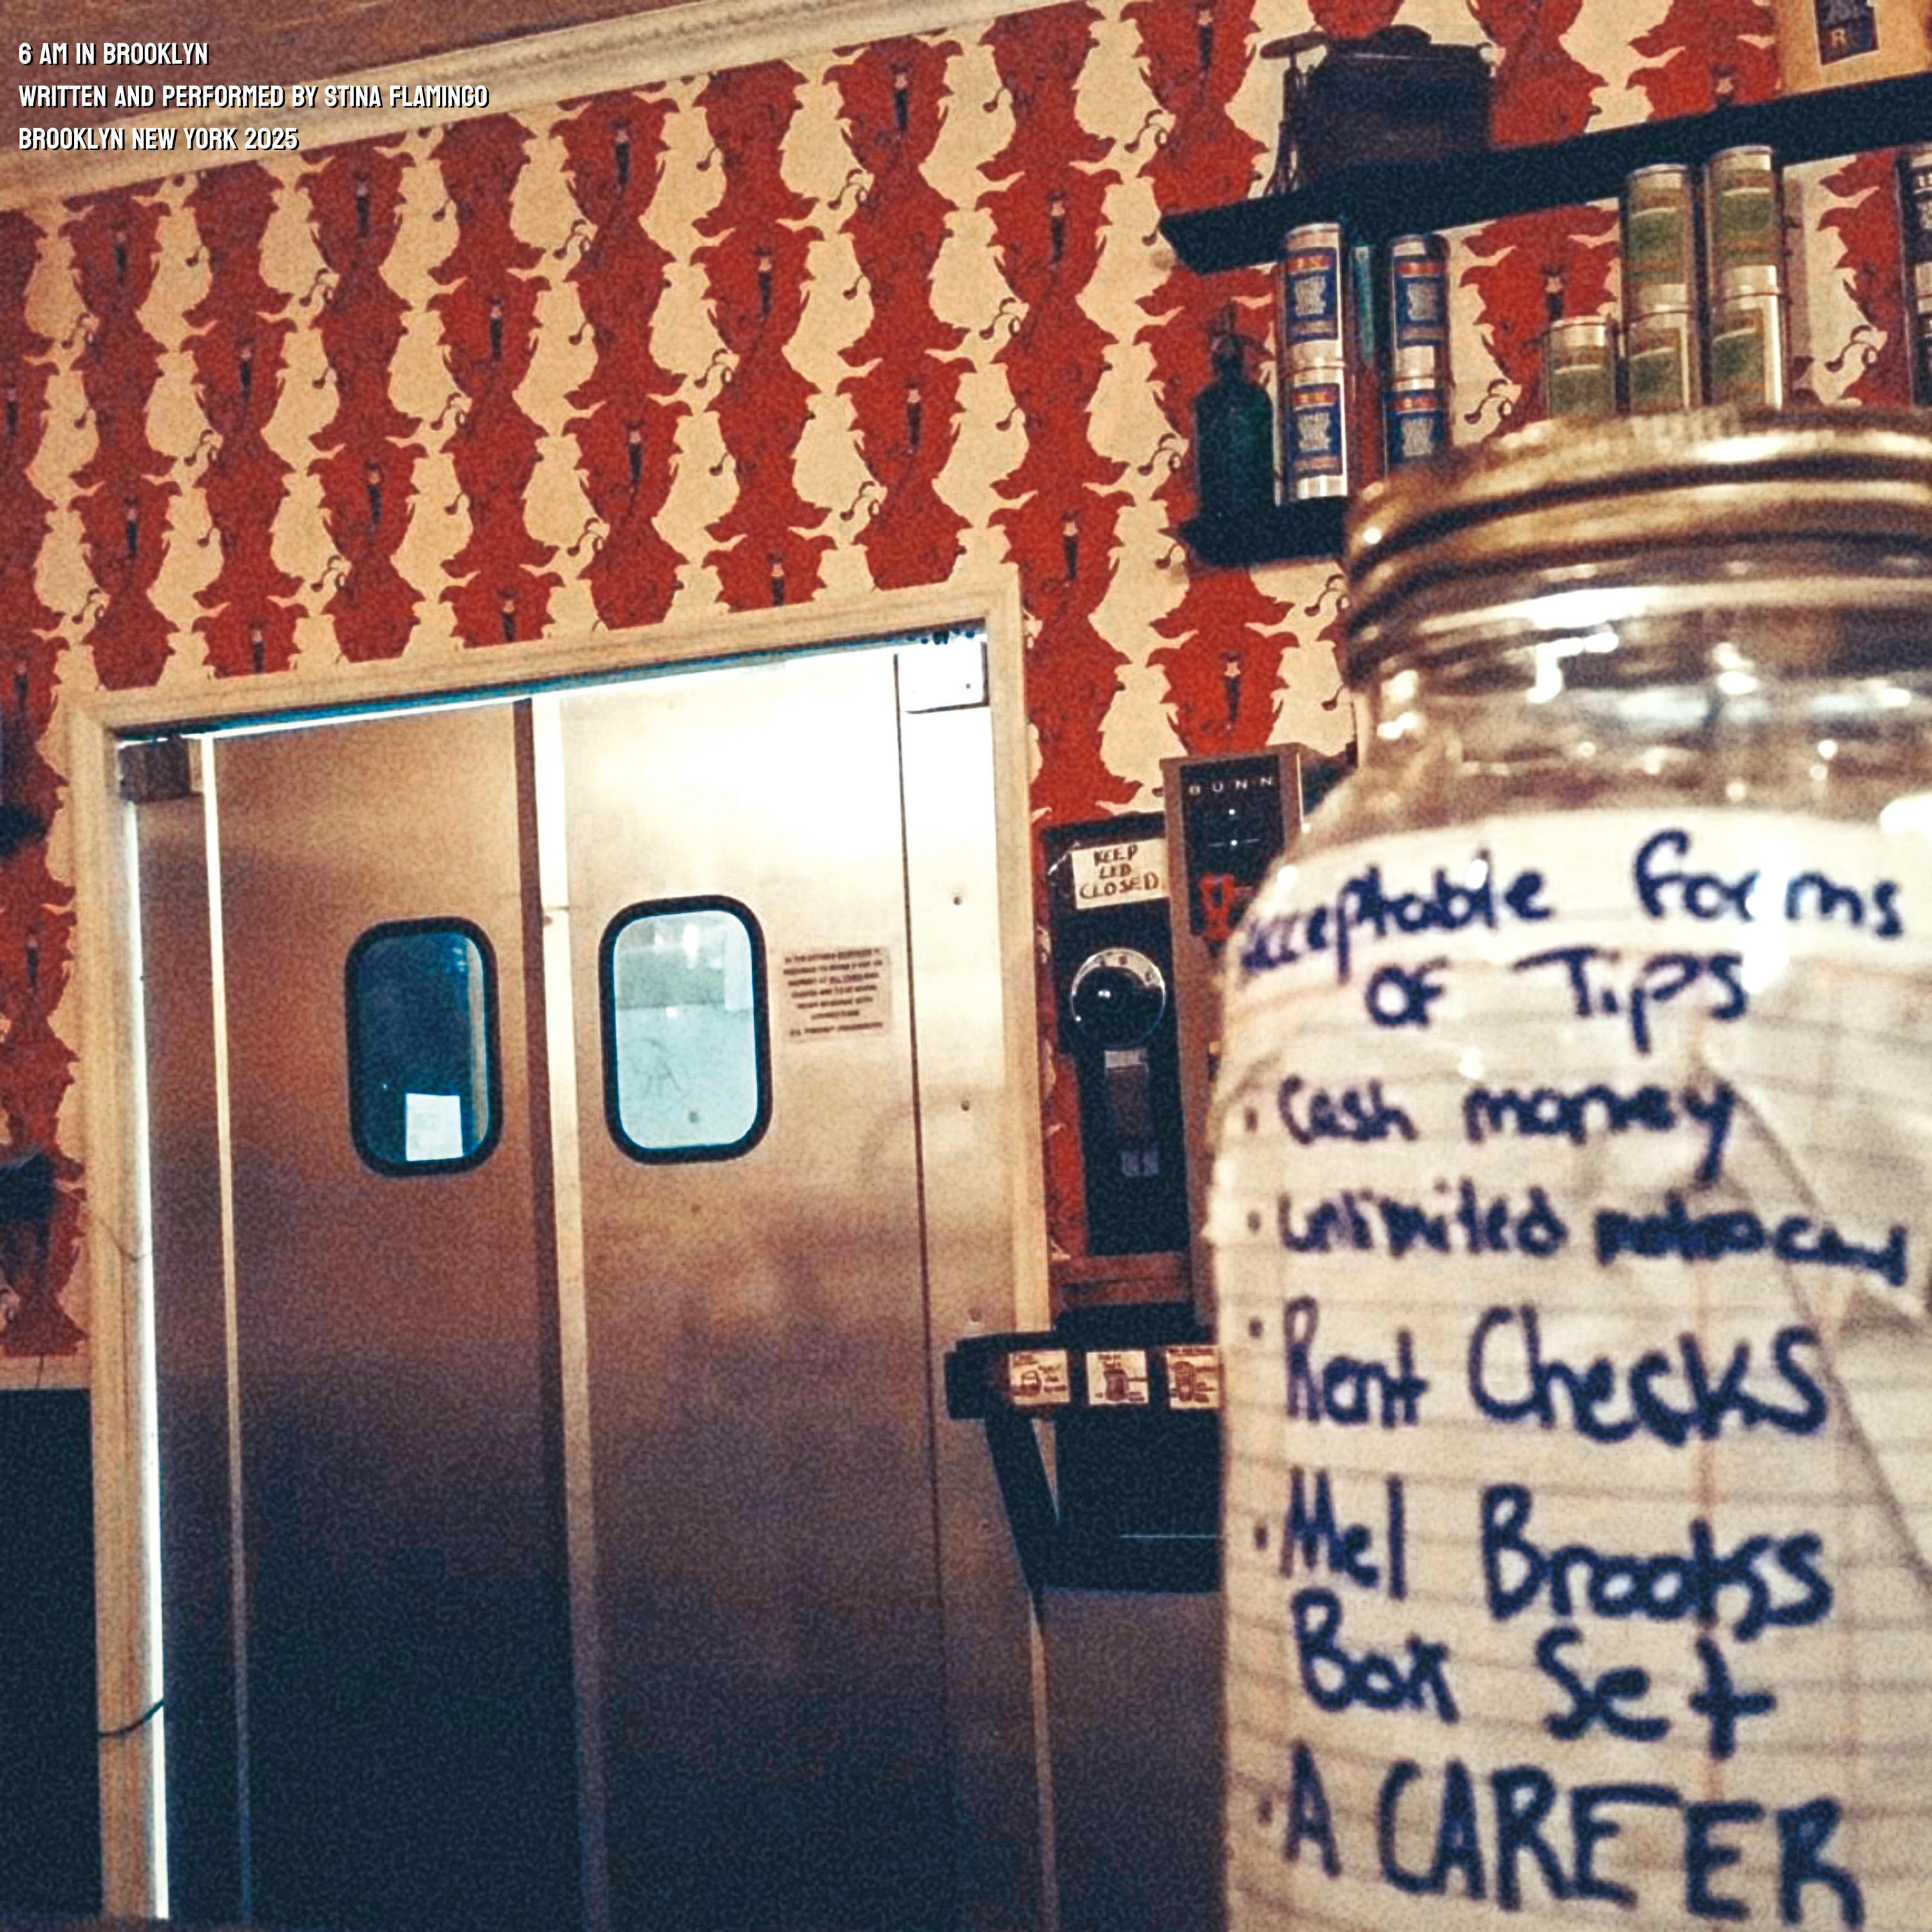 6 AM IN BROOKLYN
WRITTEN AND PERFORMED BY STINA FLAMINGO
BROOKLYN NEW YORK 2025
BUNN
KEEP
LID
CLOSED
Acceptable forms
OF Tips
• Cash money
• Unlimited metrocard
• Rent Checks
• Mel Brooks
Box Set
• A CAREER